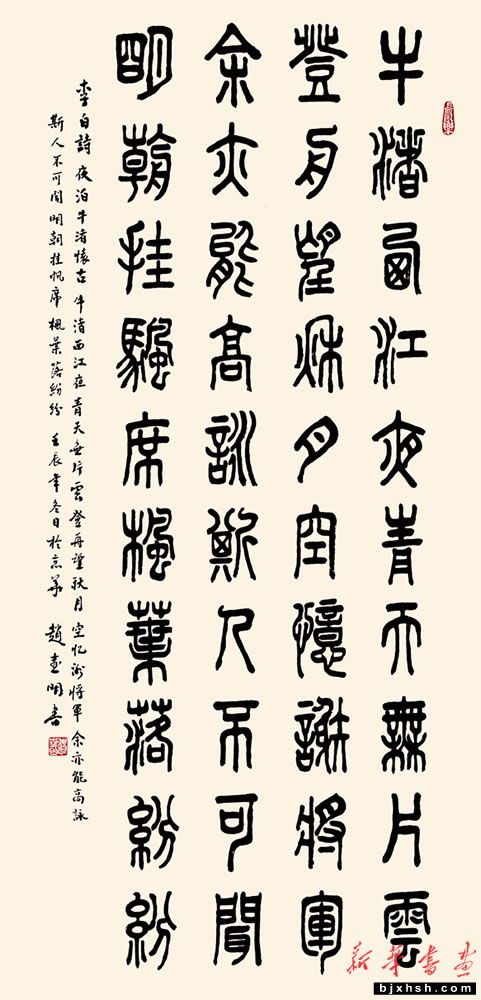 牛渚西江夜青天無片雲
登舟望秋月空憶謝將軍
余亦能高詠斯人不可聞
明朝挂颿席楓葉落紛紛
李白詩 夜泊牛渚懷古 牛渚西江夜 青天無片雲 登舟望秋月 空忆謝將軍 余亦能高詠
斯人不可聞 明朝挂帆席 楓葉落紛紛 壬辰年冬日於京華 趙明書
新華書畫
bjxhsh.com